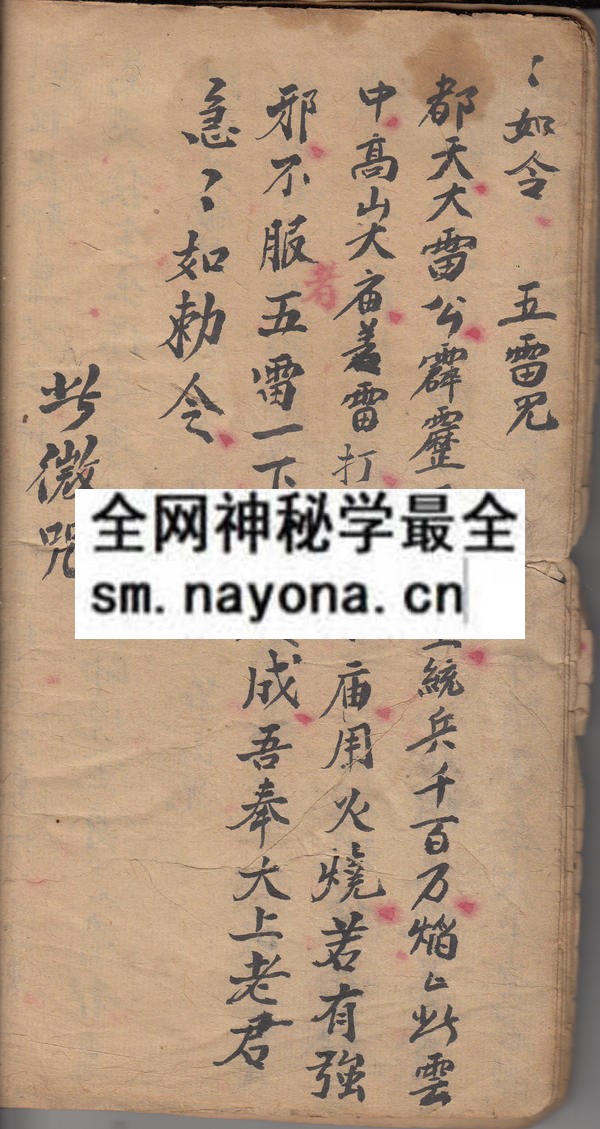 〻如令 五雷咒
都天大雷公霹靂
統兵千百万焰〻此雲
中高山大庙着雷打
庙用火燒若有強
邪不服五雷一下
成吾奉大上老君
急〻如勅令
此微咒
者
全网神秘学最全
sm.nayona.cn